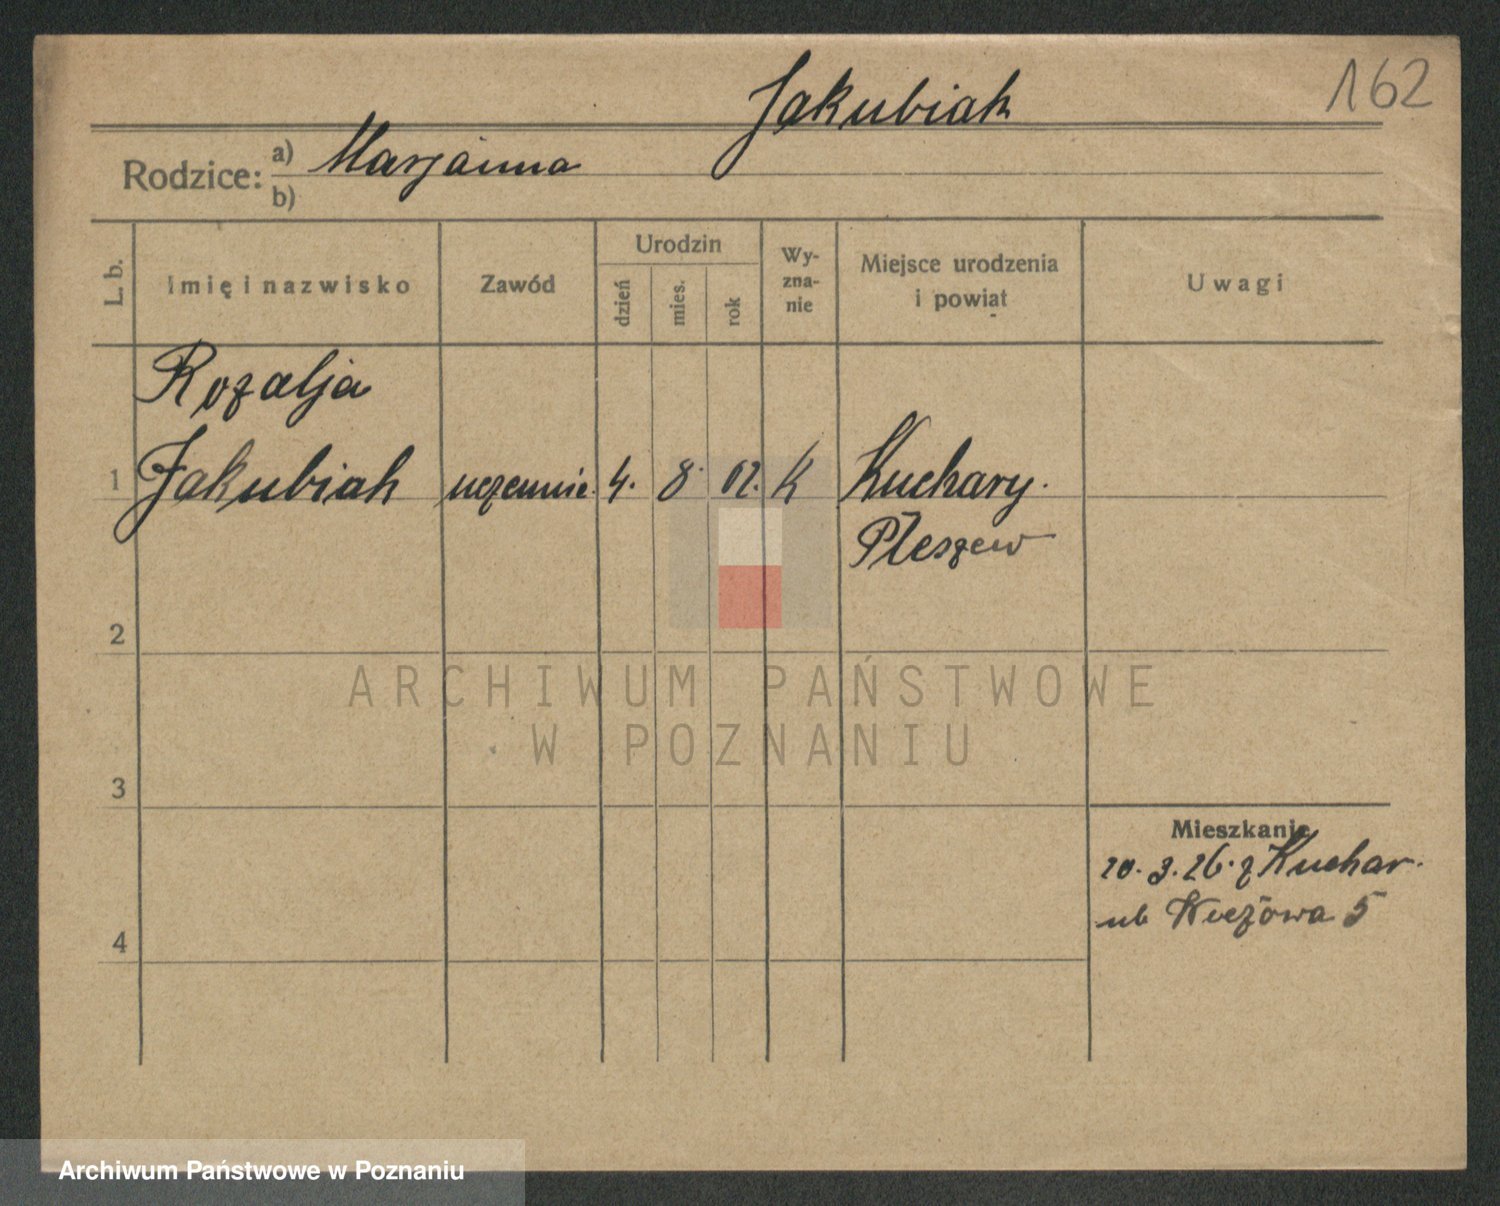 162
Jakubiak
Rodzice: a) Marjanna
b)
L. b.
Imię i nazwisko
Zawód
Urodzin
dzień
mies.
rok
Wy-
zna-
nie
Miejsce urodzenia
i powiat
Uwagi
Rozalja
1 Jakubiak uczennic. 4. 8. 02. K Kuchary.
Pleszew
2
ARCHIWUM PAŃSTWOWE
W POZNANIU
3
Mieszkanie
20.3.26. z Kuchar.
5
4
Archiwum Państwowe w Poznaniu